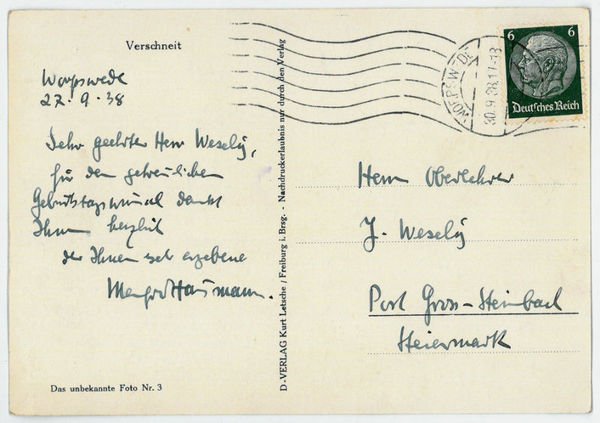 Verschneit
Worpswede
27.9.38
Sehr geehrter Herr Wesely,
für den getreulichen
Geburtstagswunsch dankt
Ihnen herzlich
der Ihnen sehr ergebene
Manfred Hausmann.
Das unbekannte Foto Nr. 3
D-VERLAG Kurt Letsche / Freiburg i. Brsg. - Nachdruckerlaubnis nur durch den Verlag
WORPSWEDE
30.9.38.17-18
6 6
Deutsches Reich
Herrn Oberlehrer
J. Wesely
Post Gross-Steinbach
Steiermark